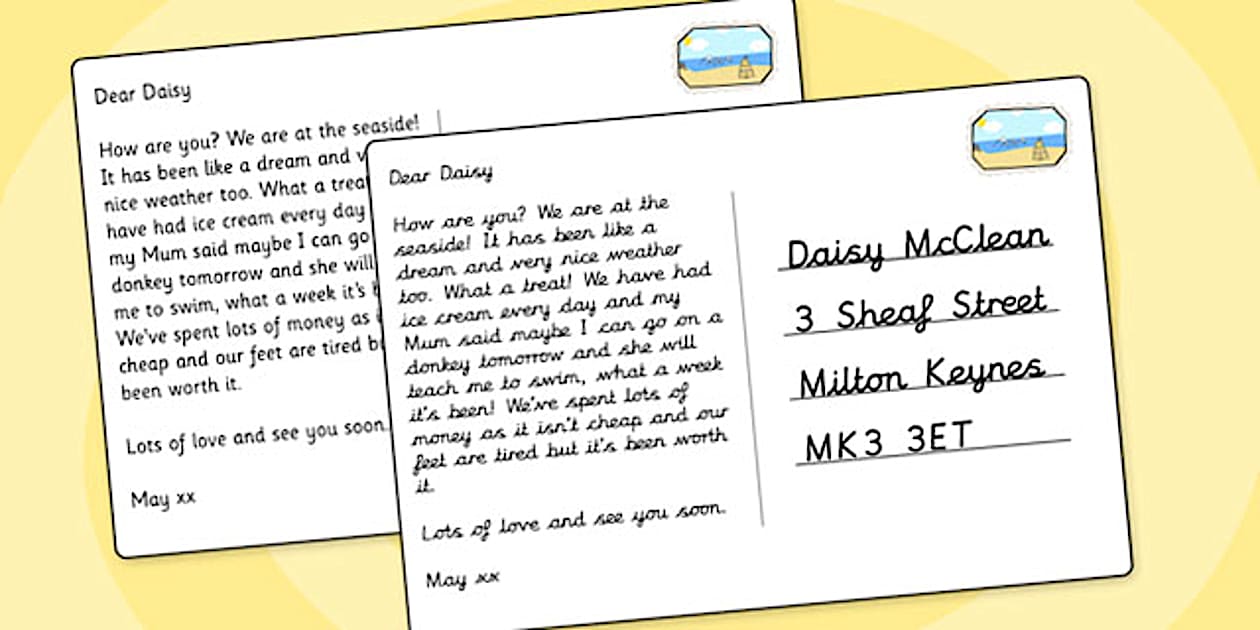 Dear Daisy
How are you? We are at the seaside!
It has been like a dream and v
nice weather too. What a trea
have had ice cream every day
my Mum said maybe I can go
donkey tomorrow and she will
me to swim, what a week it's
We've spent lots of money as
cheap and our feet are tired b
been worth it.
Lots of love and see you soon.
May xx
Dear Daisy
How are you? We are at the
seaside! It has been like a
dream and very nice weather
too. What a treat! We have had
ice cream every day and my
Mum said maybe I can go on a
donkey tomorrow and she will
teach me to swim, what a week
it's been! We've spent lots of
money as it isn't cheap and our
feet are tired but it's been worth
it.
Lots of love and see you soon.
May xx
Daisy McClean
3 Sheaf Street
Milton Keynes
MK3 3ET